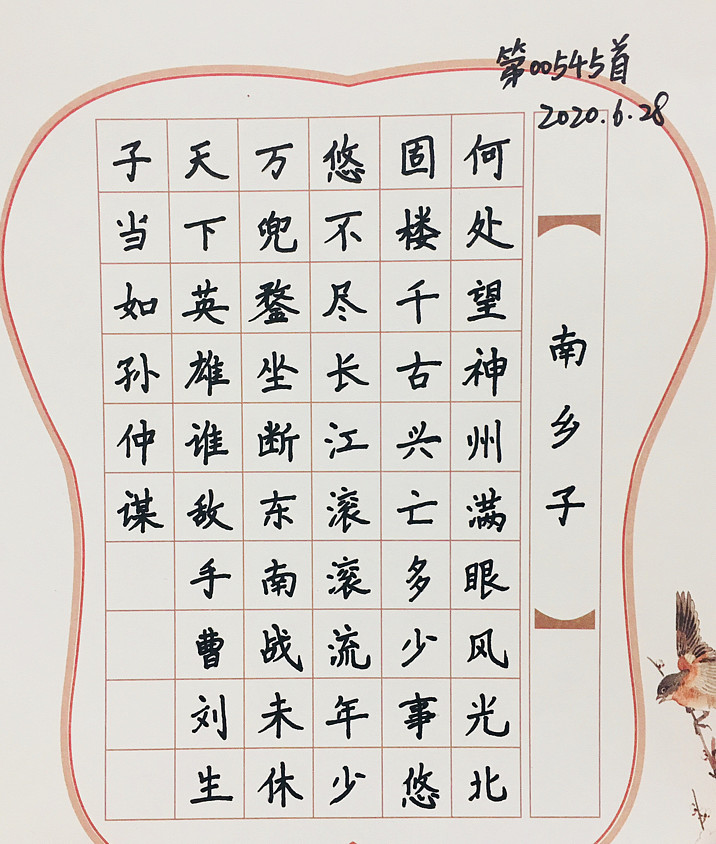 第00545首
2020.6.28
南乡子
何处望神州满眼风光北
固楼千古兴亡多少事悠
悠不尽长江滚滚流年少
万兜鍪坐断东南战未休
天下英雄谁敌手曹刘生
子当如孙仲谋